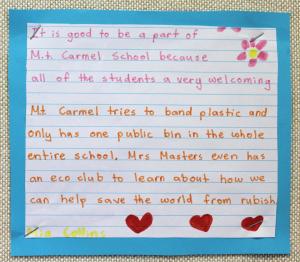 It is good to be a part of
M.t Carmel School because
all of the students a very welcoming
Mt Carmel tries to band plastic and
only has one public bin in the whole
entire school. Mrs Masters even has
an eco club to learn about how we
can help save the world from rubish
Mia Collins